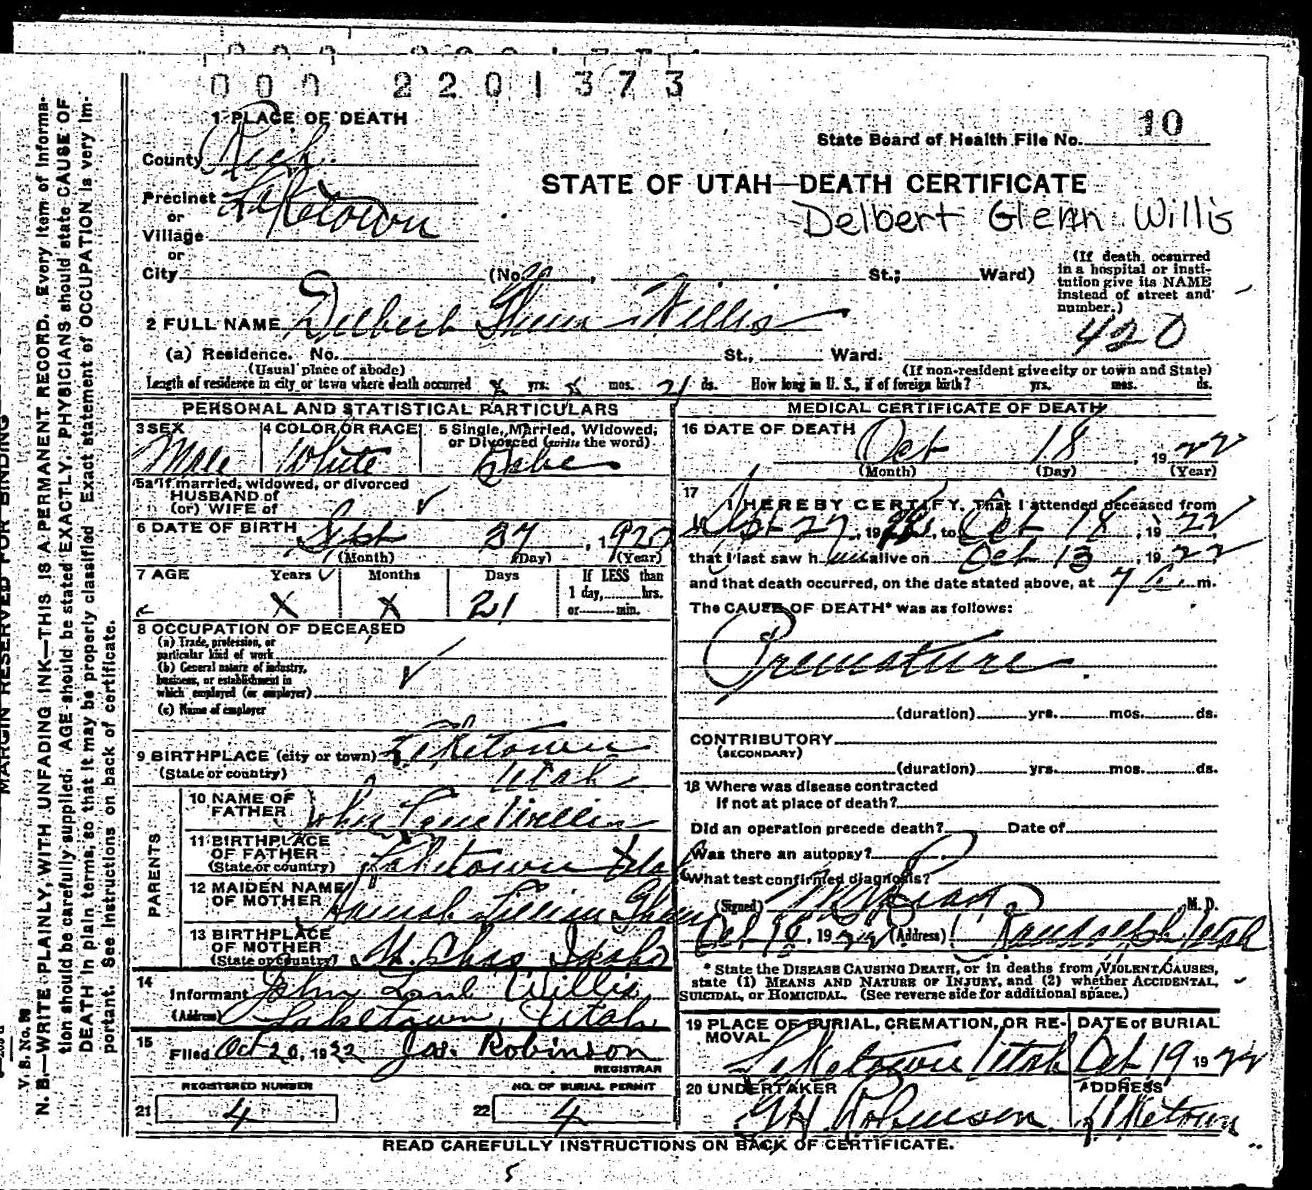 000 2201373
1 PLACE OF DEATH
County Rich
Precinct Laketown
or
Village
or
City (No. , St.; Ward)
State Board of Health File No. 10
STATE OF UTAH—DEATH CERTIFICATE
Delbert Glenn Willis
(If death occurred in a hospital or institution give its NAME instead of street and number.)
420
2 FULL NAME Delbert Glenn Willis
(a) Residence. No. St., Ward.
(Usual place of abode) (If non-resident give city or town and State)
Length of residence in city or town where death occurred x yrs. x mos. 21 ds. How long in U. S., if of foreign birth? yrs. mos. ds.
PERSONAL AND STATISTICAL PARTICULARS
3 SEX Male
4 COLOR OR RACE White
5 Single, Married, Widowed, or Divorced (write the word)
5a If married, widowed, or divorced
HUSBAND of
(or) WIFE of
6 DATE OF BIRTH Sept 27, 192
(Month) (Day) (Year)
7 AGE Years X Months X Days 21 If LESS than 1 day, hrs. or min.
8 OCCUPATION OF DECEASED
(a) Trade, profession, or particular kind of work
(b) General nature of industry, business, or establishment in which employed (or employer)
(c) Name of employer
9 BIRTHPLACE (city or town) Laketown
(State or country) Utah
PARENTS
10 NAME OF FATHER John Willis
11 BIRTHPLACE OF FATHER (State or country) Laketown Utah
12 MAIDEN NAME OF MOTHER Hannah Lillian
13 BIRTHPLACE OF MOTHER (State or country) St. Chas Idaho
14 Informant John Willis
(Address) Laketown, Utah
15 Filed Oct 20, 1922 Jos. Robinson
REGISTRAR
REGISTERED NUMBER
21 4
NO. OF BURIAL PERMIT
22 4
MEDICAL CERTIFICATE OF DEATH
16 DATE OF DEATH Oct 18, 1922
(Month) (Day) (Year)
17 I HEREBY CERTIFY, That I attended deceased from
Sept 27, 1922, to Oct 18, 1922
that I last saw him alive on Oct 13, 1922
and that death occurred, on the date stated above, at 7 m.
The CAUSE OF DEATH* was as follows:
Premature
(duration) yrs. mos. ds.
CONTRIBUTORY
(SECONDARY)
(duration) yrs. mos. ds.
18 Where was disease contracted
If not at place of death?
Did an operation precede death? Date of
Was there an autopsy?
What test confirmed diagnosis?
(Signed) M. D.
Oct , 1922 (Address) Randolph Utah
* State the DISEASE CAUSING DEATH, or in deaths from VIOLENT CAUSES,
state (1) MEANS AND NATURE OF INJURY, and (2) whether ACCIDENTAL,
SUICIDAL, or HOMICIDAL. (See reverse side for additional space.)
19 PLACE OF BURIAL, CREMATION, OR REMOVAL Laketown Utah
DATE of BURIAL Oct 19 1922
20 UNDERTAKER Robinson
ADDRESS Laketown
READ CAREFULLY INSTRUCTIONS ON BACK OF CERTIFICATE.
5
MARGIN RESERVED FOR BINDING
V. B. No.
N. B.—WRITE PLAINLY, WITH UNFADING INK—THIS IS A PERMANENT RECORD. Every item of informa-
tion should be carefully supplied. AGE should be stated EXACTLY. PHYSICIANS should state CAUSE OF
DEATH in plain terms, so that it may be properly classified. Exact statement of OCCUPATION is very im-
portant. See instructions on back of certificate.